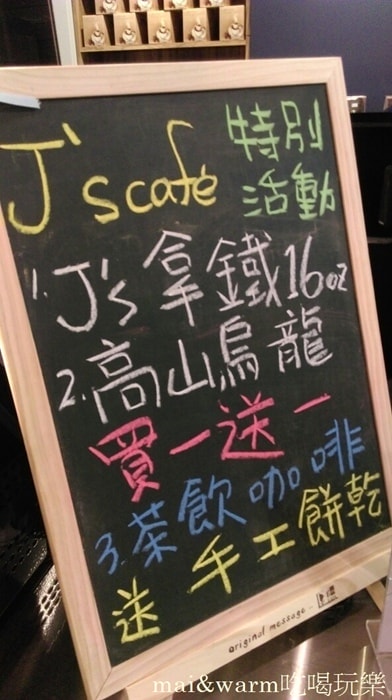 J's cafe 特別
活動
1. J's 拿鐵 16oz
2. 高山烏龍
買一送一
3. 茶飲咖啡
送手工餅乾
original message
mai&warm吃喝玩樂